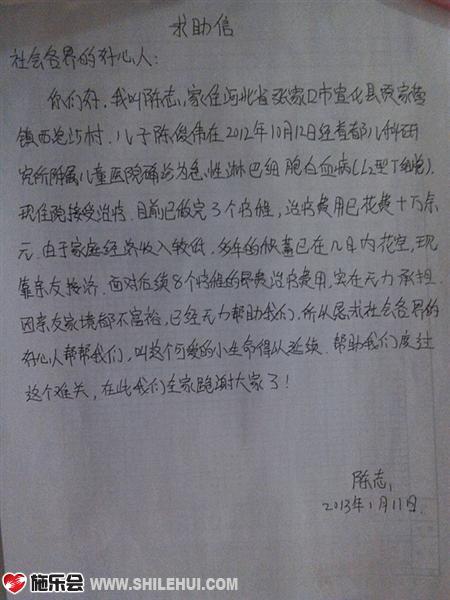 求助信
社会各界的好心人:
你们好,我叫陈志,家住河北省张家口市宣化县贾家营
镇西泡沙村。儿子陈俊伟在2012年10月12日经首都儿科研
究所附属儿童医院确诊为急性淋巴细胞白血病(L2型T细胞).
现住院接受治疗.目前已做完3个疗程,治疗费用已花费十万余
元.由于家庭经济收入较低,多年的积蓄已在几月内花空,现
靠亲友接济.面对后续8个疗程的昂贵治疗费用,实在无力承担.
因亲友家境都不富裕,已经无力帮助我们.所以恳求社会各界的
好心人帮帮我们,叫这个可爱的小生命得以延续.帮助我们度过
这个难关,在此我们全家跪谢大家了!
陈志,
2013年1月11日.
施乐会 WWW.SHILEHUI.COM